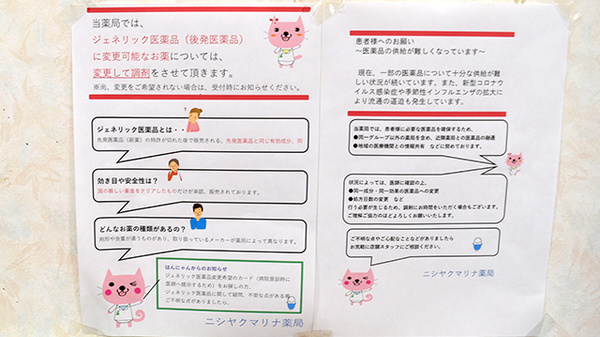 当薬局では、
ジェネリック医薬品（後発医薬品）
に変更可能なお薬については、
変更して調剤をさせて頂きます。
※尚、変更をご希望されない場合は、受付時にお知らせください。
ジェネリック医薬品とは・・
先発医薬品（新薬）の特許が切れた後で販売される、先発医薬品と同じ有効成分、同
効き目や安全性は？
国の厳しい審査をクリアしたものだけが承認、販売されております。
どんなお薬の種類があるの？
剤形や含量が違うものがあり、取り扱っているメーカーが薬局によって異なります。
はんにゃんからのお知らせ
ジェネリック医薬品変更希望のカード（病院受診時に
医師へ提示するため）をお探しの方、
ジェネリック医薬品に関して疑問、不安な点がある等
ご不明な点がありましたら、
ニシヤクマリナ薬局
患者様へのお願い
～医薬品の供給が難しくなっています～
現在、一部の医薬品について十分な供給が難
しい状況が続いています。また、新型コロナウ
イルス感染症や季節性インフルエンザの拡大に
より流通の逼迫も発生しています。
当薬局では、患者様に必要な医薬品を確保するため、
●同一グループ以外の薬局を含め、近隣薬局との医薬品の融通
●地域の医療機関との情報共有　などに努めております。
状況によっては、医師に確認の上、
●同一成分・同一効果の医薬品への変更
●処方日数の変更　など
行う必要が生じるため、調剤にお時間をいただく場合もございます。
ご理解ご協力のほどよろしくお願いいたします。
ご不明な点やご心配なことなどがありましたら
お気軽に店舗スタッフにご相談ください。
ニシヤクマリナ薬局